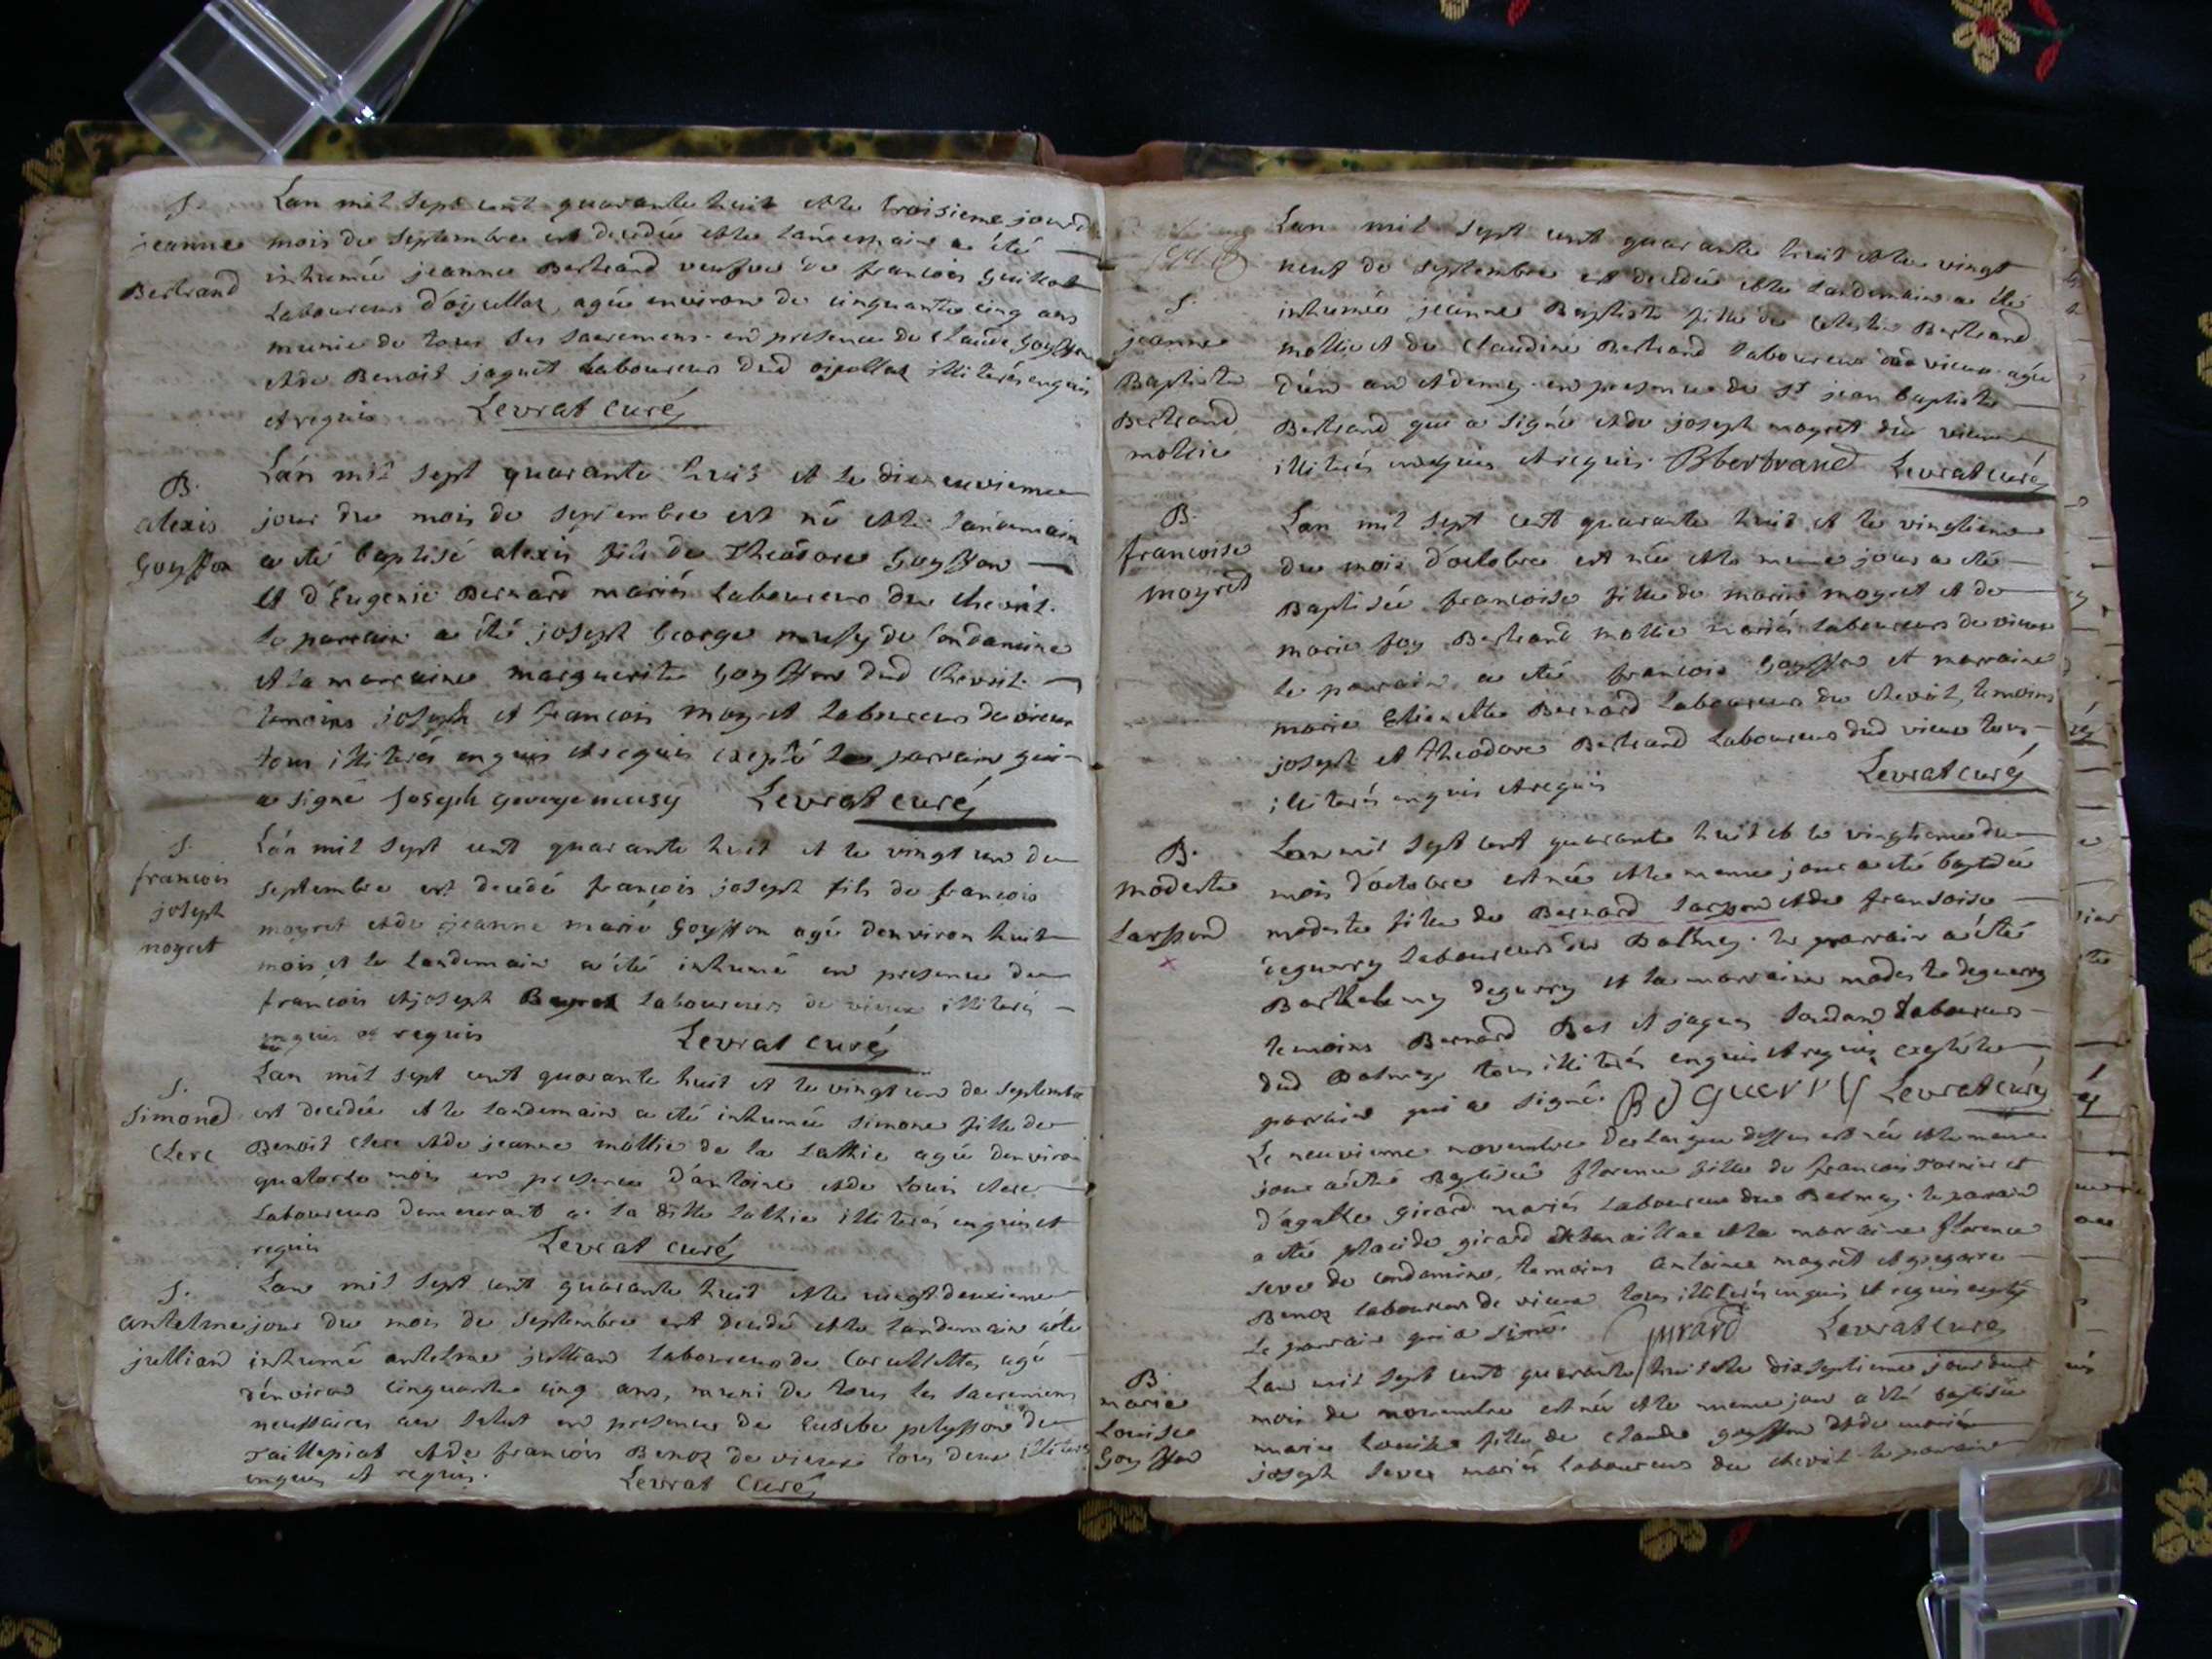 S.
jeanne
Bertrand
Lan mil sept cent quarante huit et le troisieme jour d
mois de septembre est decedée et le a été
inhumée jeanne Bertrand veufve de francois Guillot
Laboureur agée environ de cinquante cinq ans
munie de tous ses sacremens en presence de Claude Goyffon
et de Benoit jaquet Laboureurs dud illiterés enquis
et requis Levrat curé
B.
alexis
Goyffon
Lan mil sept quarante huit et le dixneuvieme
jour du mois de septembre est né et le landemain
a été baptisé alexis fils de Theodore Goyffon
et d'Eugenie Bernard mariés Laboureurs du chevril
le parrain a été joseph George musy de Condamine
et la marraine marguerite Goyffon dud chevril
temoins joseph et francois moyret laboureurs de vieux
tous illiterés enquis et requis excepté le parrain qui
a signé Joseph george musy Levrat curé
S.
francois
joseph
moyret
Lan mil sept cent quarante huit et le vingt un de
septembre est decedé francois joseph fils de francois
moyret et de jeanne marie Goyffon agé denviron huit
mois et le landemain a été inhumé en presence de
francois et joseph laboureurs de vieux illiterés
enquis et requis Levrat curé
S.
Simond
Clerc
Lan mil sept cent quarante huit et le vingt un de septembre
est decedée et le landemain a été inhumée simone fille de
Benoit Clerc et de jeanne mollie de la Lathie agée denviron
quatorze mois en presence d'antoine et de Louis clerc
Laboureurs demeurant a la ditte lathie illiterés enquis et
requis Levrat curé
S.
antelme
jullian
Lan mil sept cent quarante huit et le vingt deuxieme
jour du mois de septembre est decedé et le landemain a été
inhumé antelme jullian laboureur de agé
d'environ cinquante cinq ans, muni de tous les sacremens
necessaires au salut en presence de Eusebe pelysson de
Taillepiat et de francois Benoz de vieux tous deux illiterés
enquis et requis. Levrat Curé
1748
S.
jeanne
Baptiste
Bertrand
mollie
Lan mil sept cent quarante huit et le vingt
neuf de septembre est decedée et le landemain a été
inhumée jeanne Baptiste fille de Bertrand
mollie et de Claudine Bertrand laboureurs dud vieux agée
d'un an et demy en presence de Sr jean baptiste
Bertrand qui a signé et de joseph moyret du vieux
illiterés enquis et requis. Bbertrand Levrat curé
B.
francoise
moyret
Lan mil sept cent quarante huit et le vingtieme
du mois d'octobre est née et le meme jour a été
Baptisée francoise fille de marin moyret et de
marie foy Bertrand mollie mariés laboureurs de vieux
le parrain a été francois Goyffon et marraine
marie Etiennette Bernard laboureurs du chevril, temoins
joseph et theodore Bertrand laboureurs dud vieux tous
illiterés enquis et requis Levrat curé
B.
modeste
Larssond
Lan mil sept cent quarante huit et le vingtieme du
mois d'octobre est née et le meme jour a été baptisée
modeste fille de Bernard et de fransoise
deguerry laboureurs du Balmey. le parrain a été
Barthelemy deguerry et la marraine modeste deguerry
temoins Bernard Bos et jaques laboureurs
dud Balmey tous illiterés enquis et requis excepté le
parrain qui a signé. B Deguerry Levrat curé
Le neuvieme novembre de lan que dessus est née et le meme
jour a été Baptisée florence fille de francois Tornier et
d'agathe girard mariés Laboureurs du Balmey. le parrain
a été placide girard et la marraine florence
seve de condamine, temoins antoine moyret et gregoire
Benoz laboureurs de vieux tous illiterés enquis et requis excepté
le parrain qui a signé. Girard Levrat curé
B.
marie
Louise
Goyffon
Lan mil sept cent quarante huit et le dixseptieme jour du
mois de novembre est née et le meme jour a été baptisée
marie Louise fille de Claude goyffon et de marie
joseph seve mariés laboureurs du chevril le parrain